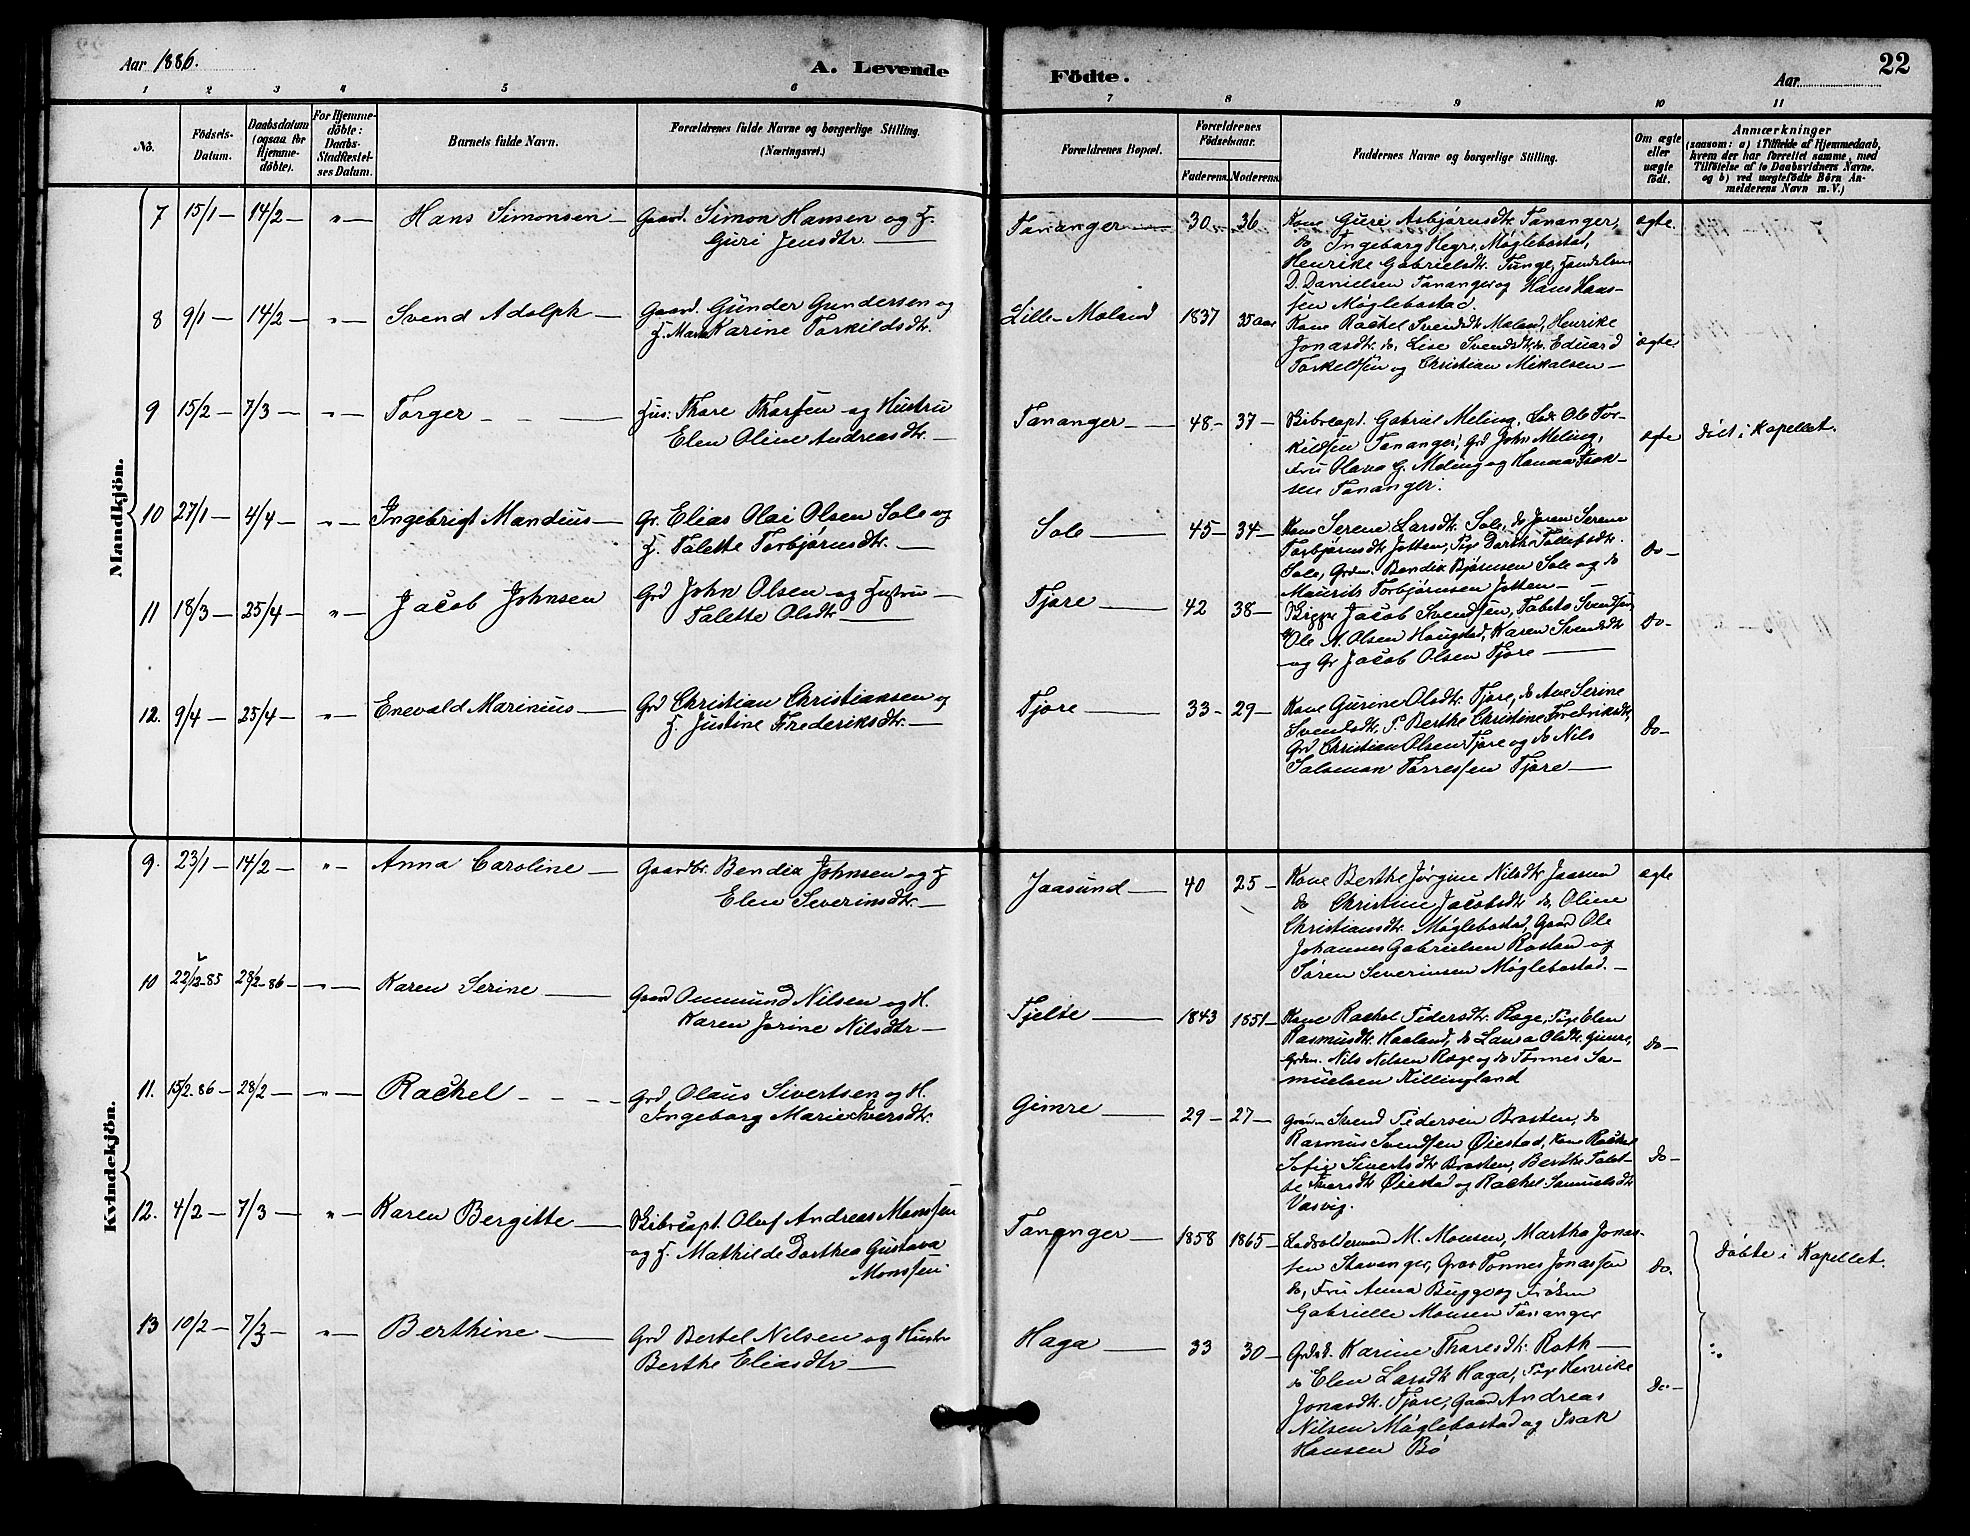 Aar 1886.
A. Levende
Födte.
Aar
22
1 2 3 4 5 6 7 8 9 10 11
No.
Födsels-
Datum.
Daabsdatum
(ogsaa for
Hjemme-
döbte).
For Hjemme-
döbte:
Daabs-
Stadfæstel-
ses Datum.
Barnets fulde Navn.
Forældrenes fulde Navne og borgerlige Stilling.
(Næringsvei.)
Forældrenes Bopæl.
Forældrenes
Födselsaar.
Faderens. Moderens.
Faddernes Navne og borgerlige Stilling.
Om ægte
eller
uægte
födt.
Anmærkninger
(saasom: a) i Tilfælde af Hjemmedaab,
hvem der har forrettet samme, med
Tilföielse af to Daabsvidners Navne.
og b) ved uægtefödte Börn An-
melderens Navn m. V.)
Mandkjön.
7 15/1 — 14/2 — " — Hans Simonsen — Gaard. Simon Hansen og H.
Guri Jensdtr. —
Tananger — 30 — 36
Kone Guri Asbjørnsdtr. Tananger,
do Ingeborg Hegre, Møglebostad,
Henrike Gabrielsdtr. Tunge,
D. Danielsen Tananger og Hans Haas-
sen Møglebostad.
ægte
8 9/1 — 14/2 — " — Svend Adolph — Gaard. Gunder Gundersen og
H. Karine Torkildsdtr.
Lille-Moland 1837 35 aar
Kone Rachel Svendsdtr Moland, Henrike
Jonasdtr. do, Lise Svendsdtr. do. Eduard
Torkeldsen og Christian Mikalsen —
ægte
9 15/2 — 7/3 — " — Torger — Hus: Thore Thorsen og Hustru
Elen Oline Andreasdtr. —
Tananger — 48 — 37 —
Skibscapt. Gabriel Meling, Ole Tor-
kildsen Tananger, Grd John Meling,
Fru Olava G. Meling og Hanna Isak-
sen Tananger.
ægte
döbt i Kapellet.
10 27/1 — 4/4 — " — Ingebrigt Mandius — Gr. Elias Olai Olsen Sole og
H. Talette Torbjørnsdtr. —
Sole — 45 — 34 —
Kone Serene Larsdtr. Sole, do Joren Serene
Torbjørnsdtr Jotten, Pige Dorthe Tollefsdtr.
Sole, Grdm. Bendix Bjørnsen Sole og do
Maurits Torbjørnsen Jotten —
Do —
11 18/3 — 25/4 — " — Jacob Johnsen Grd John Olsen og Hustru —
Talette Olsdtr —
Tjore — 42 38 —
Jacob Svendsen, Tabita Svendsen,
Ole N. Olsen Haugstad, Karen Svendsdtr
og Gr Jacob Olsen Tjore —
Do -
12. 9/4 — 25/4 — " — Enevald Marinius — Grd Christian Christiansen og
H. Justine Frederiksdtr. —
Tjore — 33 — 29 —
Kone Gurine Olsdtr. Tjore, do Ane Serine
Svendsdtr, P. Berthe Christine Fredriksdtr,
Grd Christian Olsen Tjore og do Nils
Salomon Tørressen Tjore —
Do -
Kvindekjön.
9. 23/1 — 14/2 — " — Anna Caroline — Gaardbr. Bendix Johnsen og H
Elen Severinsdtr. —
Jaasund — 40 25 —
Kone Berthe Jørgine Nilsdtr Jaasund
do Christine Jacobsdtr do, Oline
Christiansdtr Møglebostad, Gaard Ole
Johannes Gabrielsen Rosland og
Søren Severinsen Møglebostad. —
ægte
10 22/12-85 28/2-86 — " — Karen Serine — Gaard Ommund Nilsen og H.
Karen Jorine Nilsdtr —
Tjelte — 1843 1851 —
Kone Rachel Pedersdtr Ræge, Pige Elen
Rasmusdtr. Haaland, do Lava Olsdtr. Gimre,
Grdm. Nils Nilsen Ræge og do Tønnes Sa-
muelsen Killingland
Do —
11. 15/2.86 — 28/2 — " — Rachel — Grd Olaus Sivertsen og H.
Ingeborg Marie Iversdtr.
Gimre — 29 — 27 —
Gaardm Svend Pedersen Brasten, do
Rasmus Svendsen Øiestad, Kone Rachel
Sofie Sivertsdtr Brasten, Berthe Talet-
te Iversdtr Øiestad og Rachel Samuelsdtr
Vasvig.
Do -
12. 4/2 — 7/3 — " — Karen Bergitte — Skibscapt. Oluf Andreas Monssen
og H. Mathilde Dorthea Gustava
Monssen
Tananger — 1858 1865 —
Lodsoldermand M. Monsen, Martha Jonas-
sen Stavanger, Tønnes Jonassen
do, Fru Anna Bugge og Frøken
Gabrielle Monsen Tananger
Do.
Döbte i Kapellet.
13 10/2 — 7/3 — " — Berthine — Grd Bertel Nilsen og Hustr
Berthe Eliasdtr —
Haga — 33 30 —
Grdsd. Karine Tharesdtr. Roth —
do Elen Larsdtr Haga, Pige Henrike
Jonasdtr. Tjore, Gaard Andreas
Nilsen Møglebostad og Isak
Hansen Bö
Do —